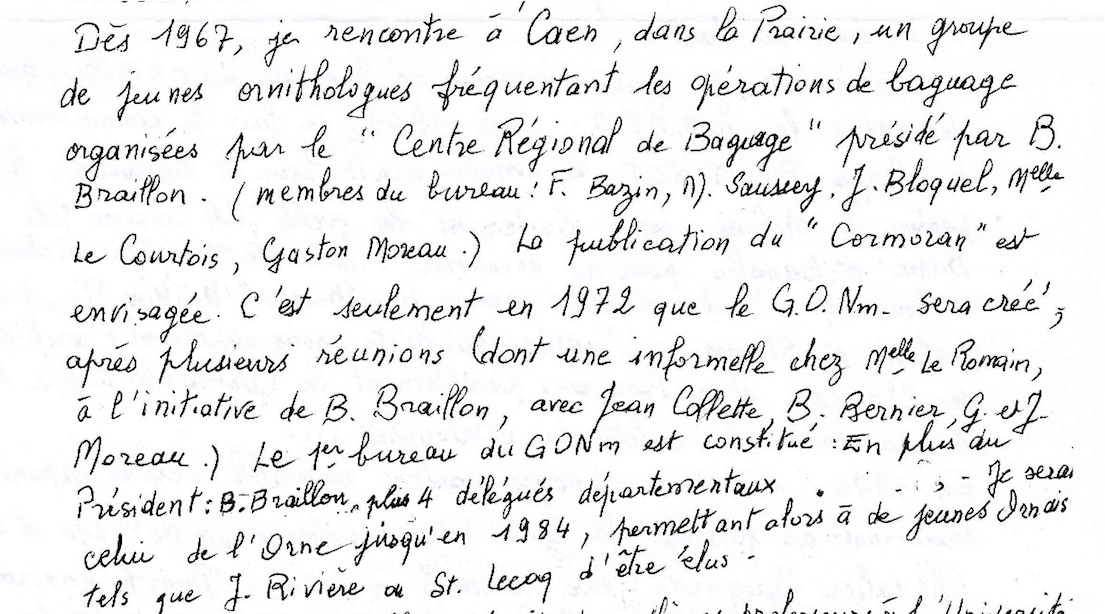 Dès 1967, je rencontre à Caen, dans la Prairie, un groupe
de jeunes ornithologues fréquentant les opérations de baguage
organisées par le "Centre Régional de Baguage" présidé par B.
Braillon. (membres du bureau : F. Bazin, M. Saussey, J. Bloquel, Melle
Le Courtois, Gaston Moreau.) La publication du "Cormoran" est
envisagée. C'est seulement en 1972 que le G.O.Nm. sera créé,
après plusieurs réunions (dont une informelle chez Melle Le Romain,
à l'initiative de B. Braillon, avec Jean Collette, B. Bernier, G. et J.
Moreau.) Le 1er bureau du GONm est constitué : En plus du
Président : B. Braillon, plus 4 délégués départementaux . - , - Je serai
celui de l'Orne jusqu'en 1984, permettant alors à de jeunes Ornais
tels que J. Rivière ou St. Lecoq d'être élus -
professeurs à l'Université